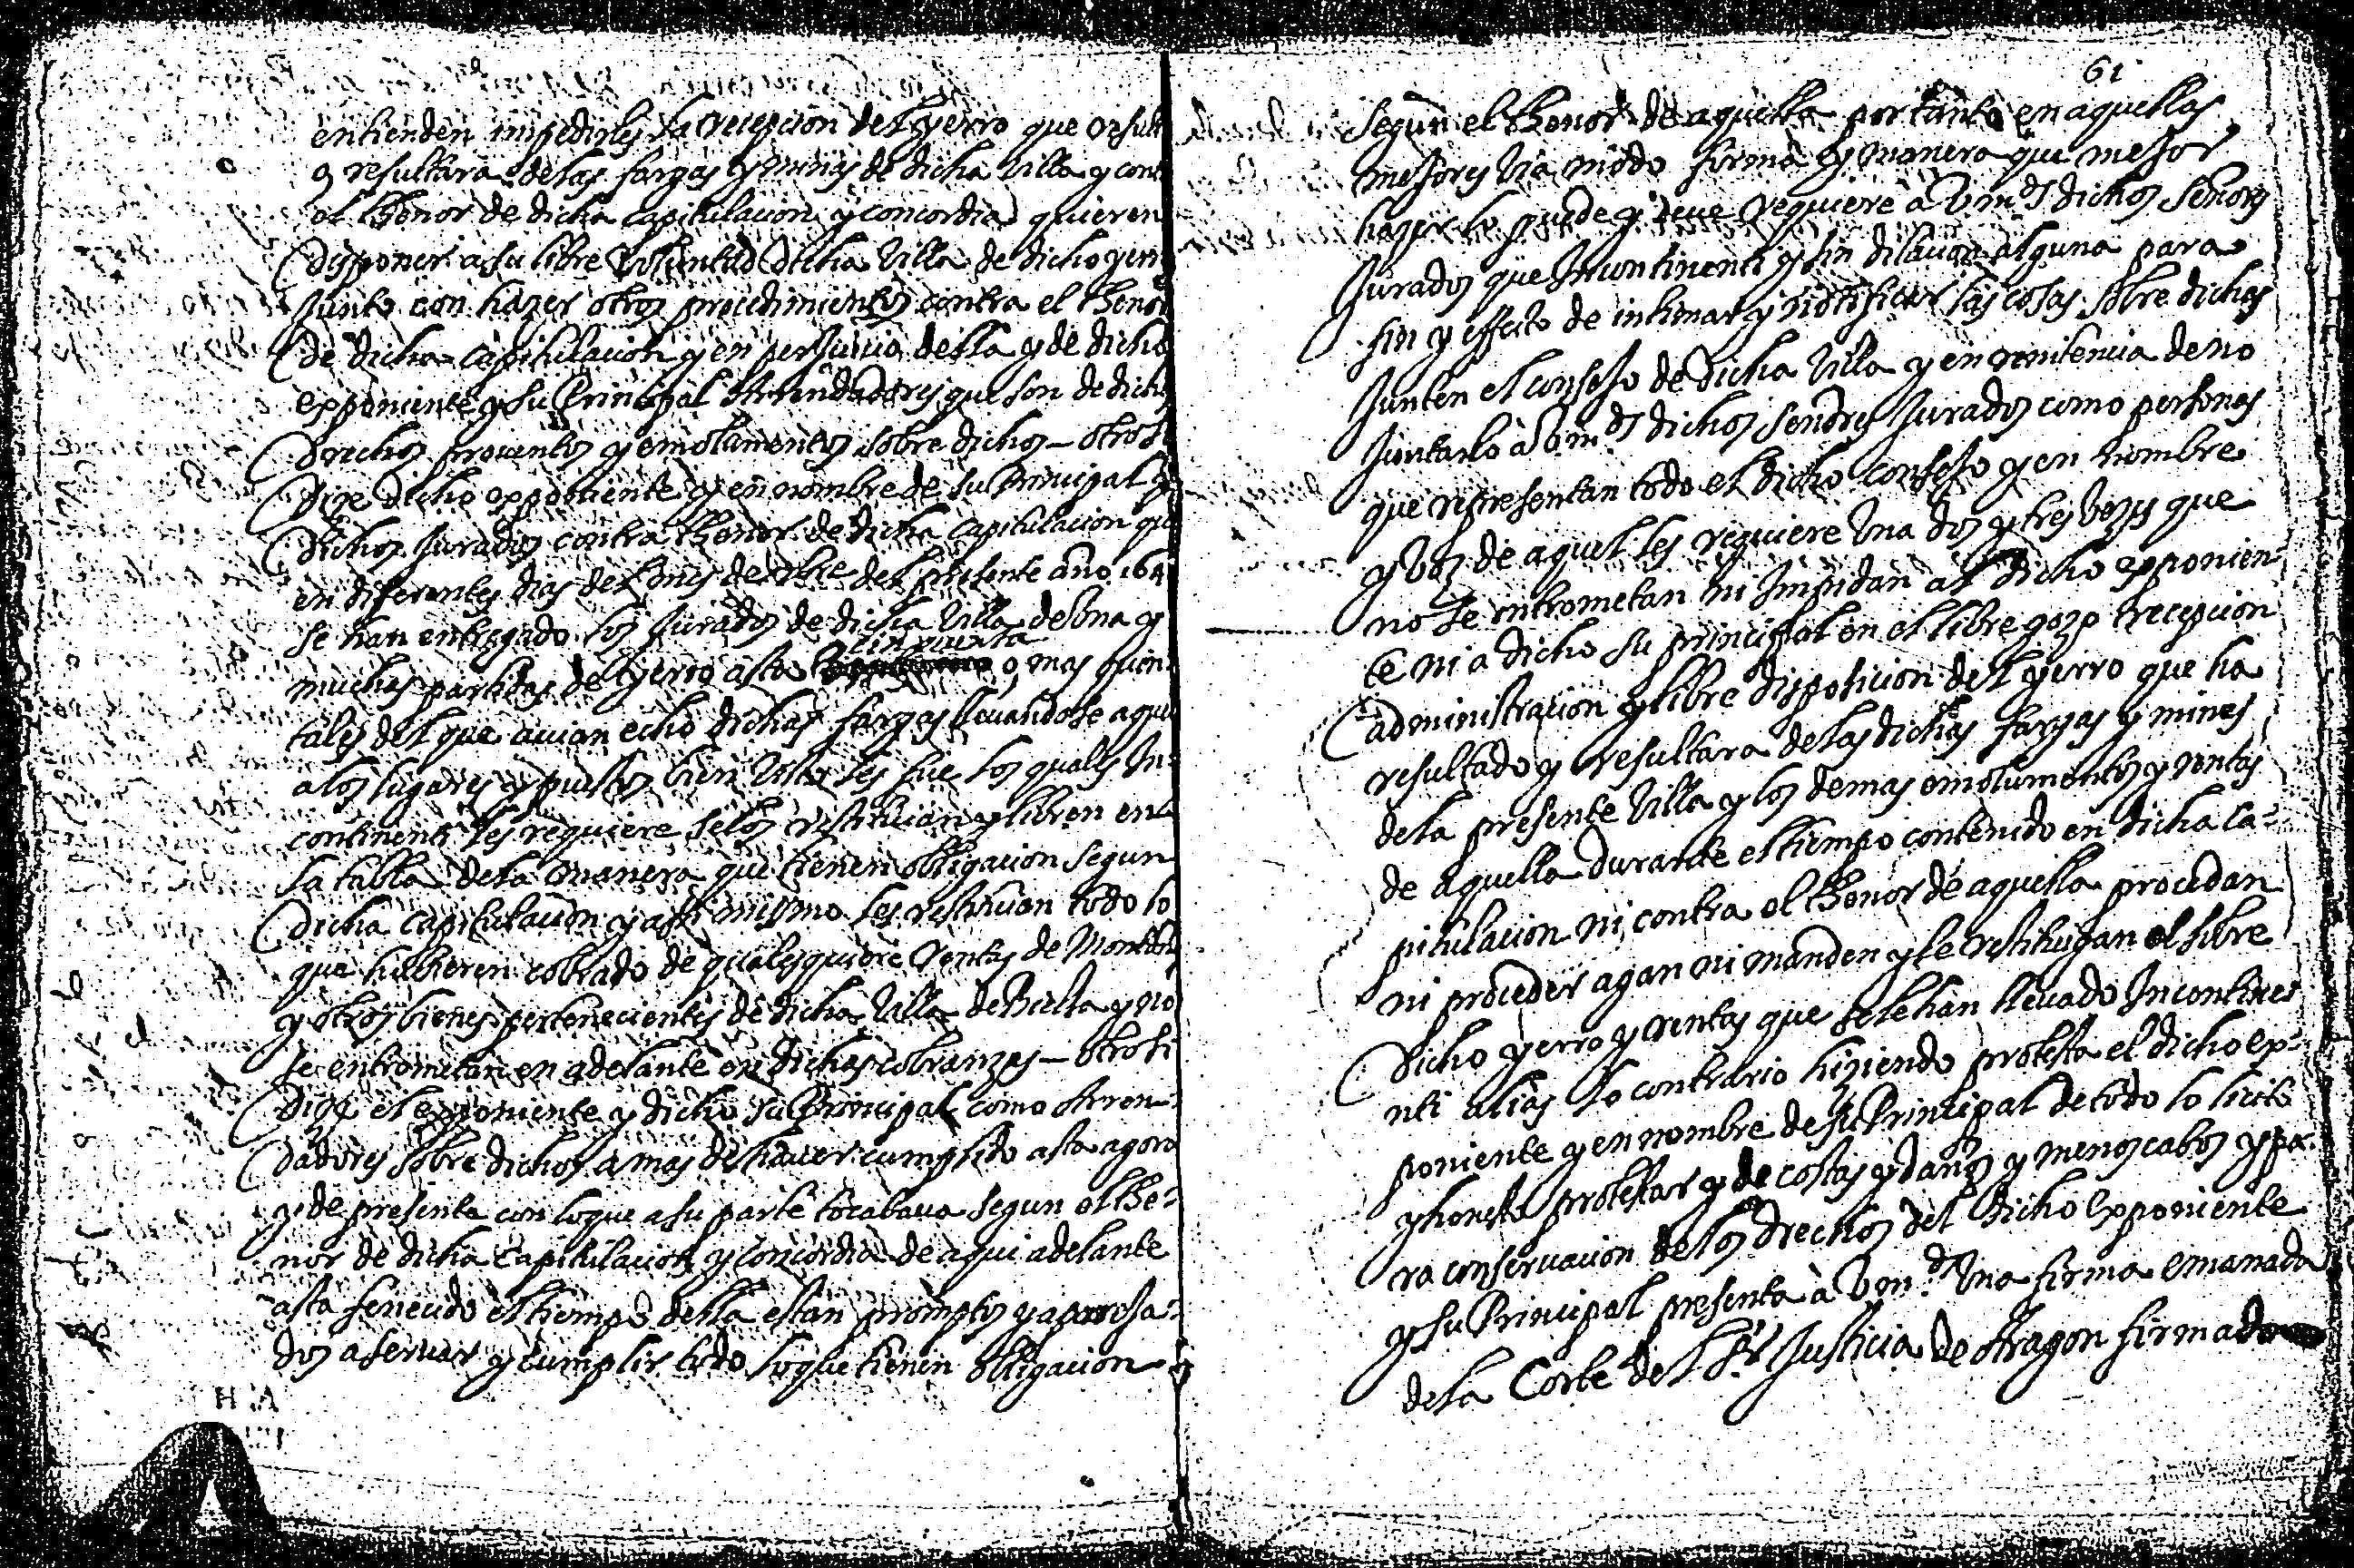 entienden impedirles la recepcion del yerro que result
y resultara de las fargas y minas de dicha Villa y cont
el thenor de dicha capitulacion y concordia quieren
disponer a su libre Voluntad dicha Villa de dicho yerr
Junto con hazer otros procedimientos contra el theno
de dicha capitulacion y en perJuicio della y de dicho
exponiente y su Principal Arrendadores que son de dicho
drechos prouentos y emolumentos sobre dichos – otrosi
Dize dicho exponiente y en nombre de su Principal q
dichos Jurados contra thenor de dicha capitulacion que
en diferentes dias del mes de del presente año 164
se han entregado los Jurados de dicha Villa de Una y
cinquenta
muchas partidas de yerro asta o mas quin
tales del que auian echo dichas fargas lleuandose aque
a los lugares y puestos bien Visto les fue los quales In-
continenti les requiere se los restituian y libren en
la tabla de la manera que tienen obligacion segun
dicha capitulacion y assi mismo les restituian todo lo
que hubieren cobrado de qualesquiere rentas de
y otros bienes pertenecientes de dicha Villa de Bielsa y no
se entrometan en adelante en dichas cobranzas – otrosi
Dize el exponiente y dicho su Principal como Arren-
dadores sobre dichos a mas de hauer cumplido asta agora
y de presente con lo que a su parte tocataua segun el the-
nor de dicha capitulacion y concordia de aqui adelante
asta fenecido el tiempo della estan promptos y apareja-
dos a seruar y cumplir todo lo que tienen obligacion
61
segun el thenor de aquella por tanto en aquellas
mejores Via modo forma y manera que mejor
hazer lo puede y deue requiere à Vm.ds dichos Señores
Jurados que Incontinenti y sin dilacion alguna para
fin y effecto de intimar y notificar las cosas sobre dichas
Junten el consejo de dicha Villa y en renitencia de no
Juntarlo à Vm.ds dichos señores Jurados como personas
que representan todo el dicho consejo y en nombre
y Voz de aquel les requiere Una dos y tres Vezes que
no se entrometan ni Impidan al dicho exponien-
te ni a dicho su principal en el libre gozo recepcion
administracion y libre disposicion del yerro que ha
resultado y resultara de las dichas fargas y minas
de la presente Villa y los demas emolumentos y rentas
de aquella durante el tiempo contenido en dicha ca-
pitulacion ni contra el thenor de aquella procedan
ni proceder agan ni manden y le restituyan el sobre
dicho yerro y rentas que se le han lleuado Incontine-
nti alias lo contrario hiziendo protesta el dicho ex-
poniente y en nombre de su Principal de todo lo licito
y honesto protestar y de costas y daños y menoscabos y pa-
ra conseruacion de los drechos del dicho exponiente
y su Principal presenta à Vm.ds Una firma emanada
de la Corte del Sr. Justicia de Aragon firmada